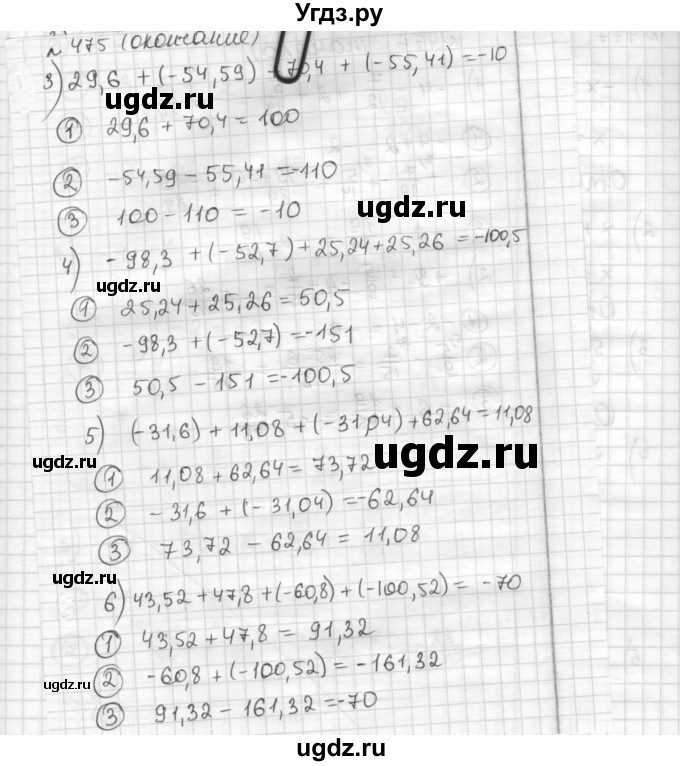 Угдз.ру
№ 475 (окончание)
3) 29,6 + (-54,59) + 70,4 + (-55,41) = -10
ugdz.ru
ugdz.ru
① 29,6 + 70,4 = 100
② -54,59 - 55,41 = -110
③ 100 - 110 = -10
ugdz.ru
4) -98,3 + (-52,7) + 25,24 + 25,26 = -100,5
ugdz.ru
① 25,24 + 25,26 = 50,5
② -98,3 + (-52,7) = -151
③ 50,5 - 151 = -100,5
5) (-31,6) + 11,08 + (-31,04) + 62,64 = 11,08
ugdz.ru
ugdz.ru
① 11,08 + 62,64 = 73,72
② -31,6 + (-31,04) = -62,64
③ 73,72 - 62,64 = 11,08
ugdz.ru
6) 43,52 + 47,8 + (-60,8) + (-100,52) = -70
① 43,52 + 47,8 = 91,32
② -60,8 + (-100,52) = -161,32
ugdz.ru
③ 91,32 - 161,32 = -70
ugdz.ru